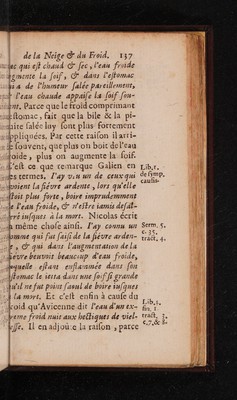 de la Neige & du Froid. 137
ac qui est chaud & sec, l'eau froide
gmente la soif, & dans l'estomac
ui a de l'humeur salée pareillement,
l'eau chaude appaise la soif sou-
nt. Parce que le froid comprimant
estomac, fait que la bile & la pi-
uite salée luy sont plus fortement
ppliquées. Par cette raison il arri-
e souvent, que plus on boit de l'eau
oide, plus on augmente la soif.
'est ce que remarque Galien en
es termes. J'ay veu un de ceux qui
voient la fiévre ardente, lors qu'elle
toit plus forte, boire imprudemment
e l'eau froide, & n'estre iamis desal-
eré iusques à la mort. Nicolas écrit
a même chose ainsi. J'ay connu un
omme qui fut saisi de la fiévre arden-
e, & qui dans l'augmentation de la
iévre beuvoit beaucoup d'eau froide,
quelle estant enflammée dans son
stomac le ietta dans une soif si grande
u'il ne fut point saoul de boire iusques
la mort. Et c'est enfin à cause du
roid qu'Avicenne dit l'eau d'un ex-
reme froid nuit aux hectiques de viel-
esse. Il en adjoûte la raison, parce
Lib. 1.
de symp.
causis.
Serm. 5.
c. 35.
tract. 4.
Lib. 1.
fin. 1.
tract. 3.